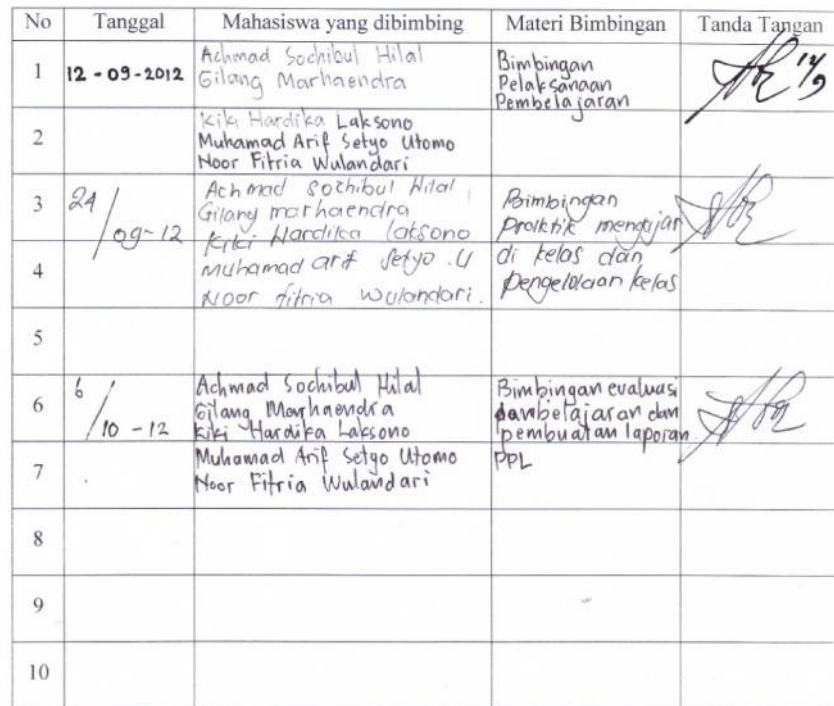 No Tanggal Mahasiswa yang dibimbing Materi Bimbingan Tanda Tangan
1 12-09-2012
Achmad Sochibul Hilal
Gilang Marhaendra
Bimbingan
Pelaksanaan
Pembelajaran
12/9
2
Kiki Hardika Laksono
Muhamad Arif Setyo Utomo
Noor Fitria Wulandari
3 24/09-12
Achmad Sochibul Hilal
Gilang marhaendra
Kiki Hardika laksono
Bimbingan
Praktik mengajar
4
muhamad arif Setyo .U
Noor fitria wulandari.
di kelas dan
pengelolaan kelas
5
6 6/10-12
Achmad Sochibul Hilal
Gilang Marhaendra
Kiki Hardika Laksono
Bimbingan evaluasi
pembelajaran dan
pembuatan laporan
7
Muhamad Arif Setyo Utomo
Noor Fitria Wulandari
PPL
8
9
10